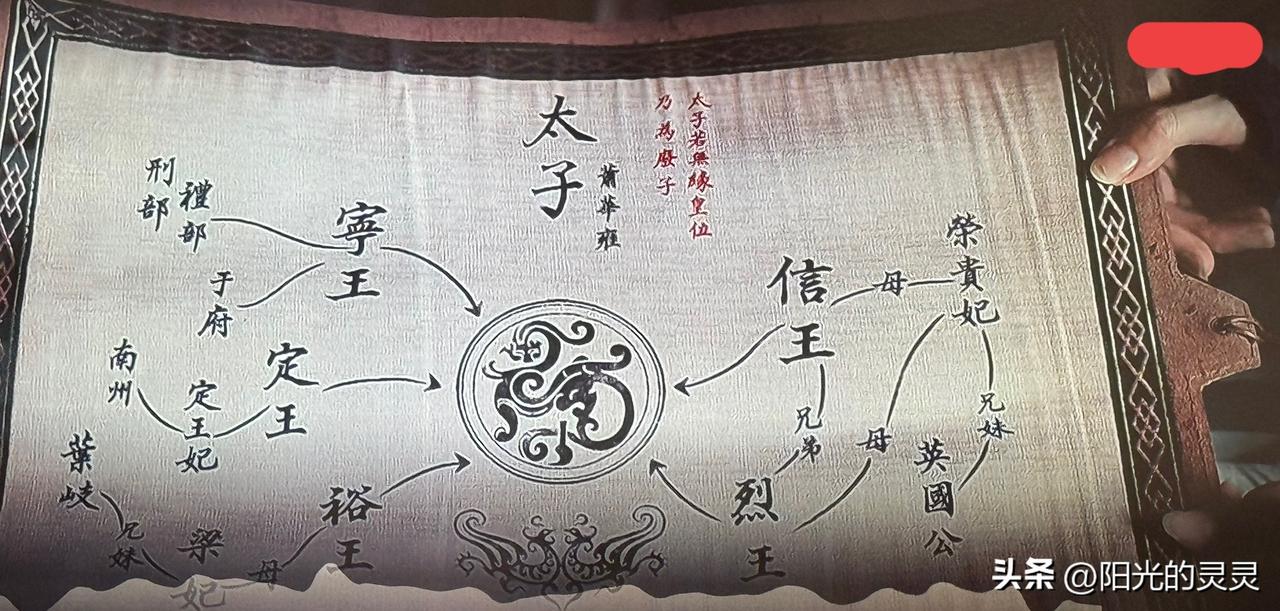 太子若無緣皇位
乃為廢子
太子
蕭華雍
寧王
禮部
刑部
于府
定王
定王妃
南州
裕王
母
梁妃
兄妹
葉岐
信王
母
榮貴妃
兄弟
烈王
母
兄妹
英國公
头条 @阳光的灵灵